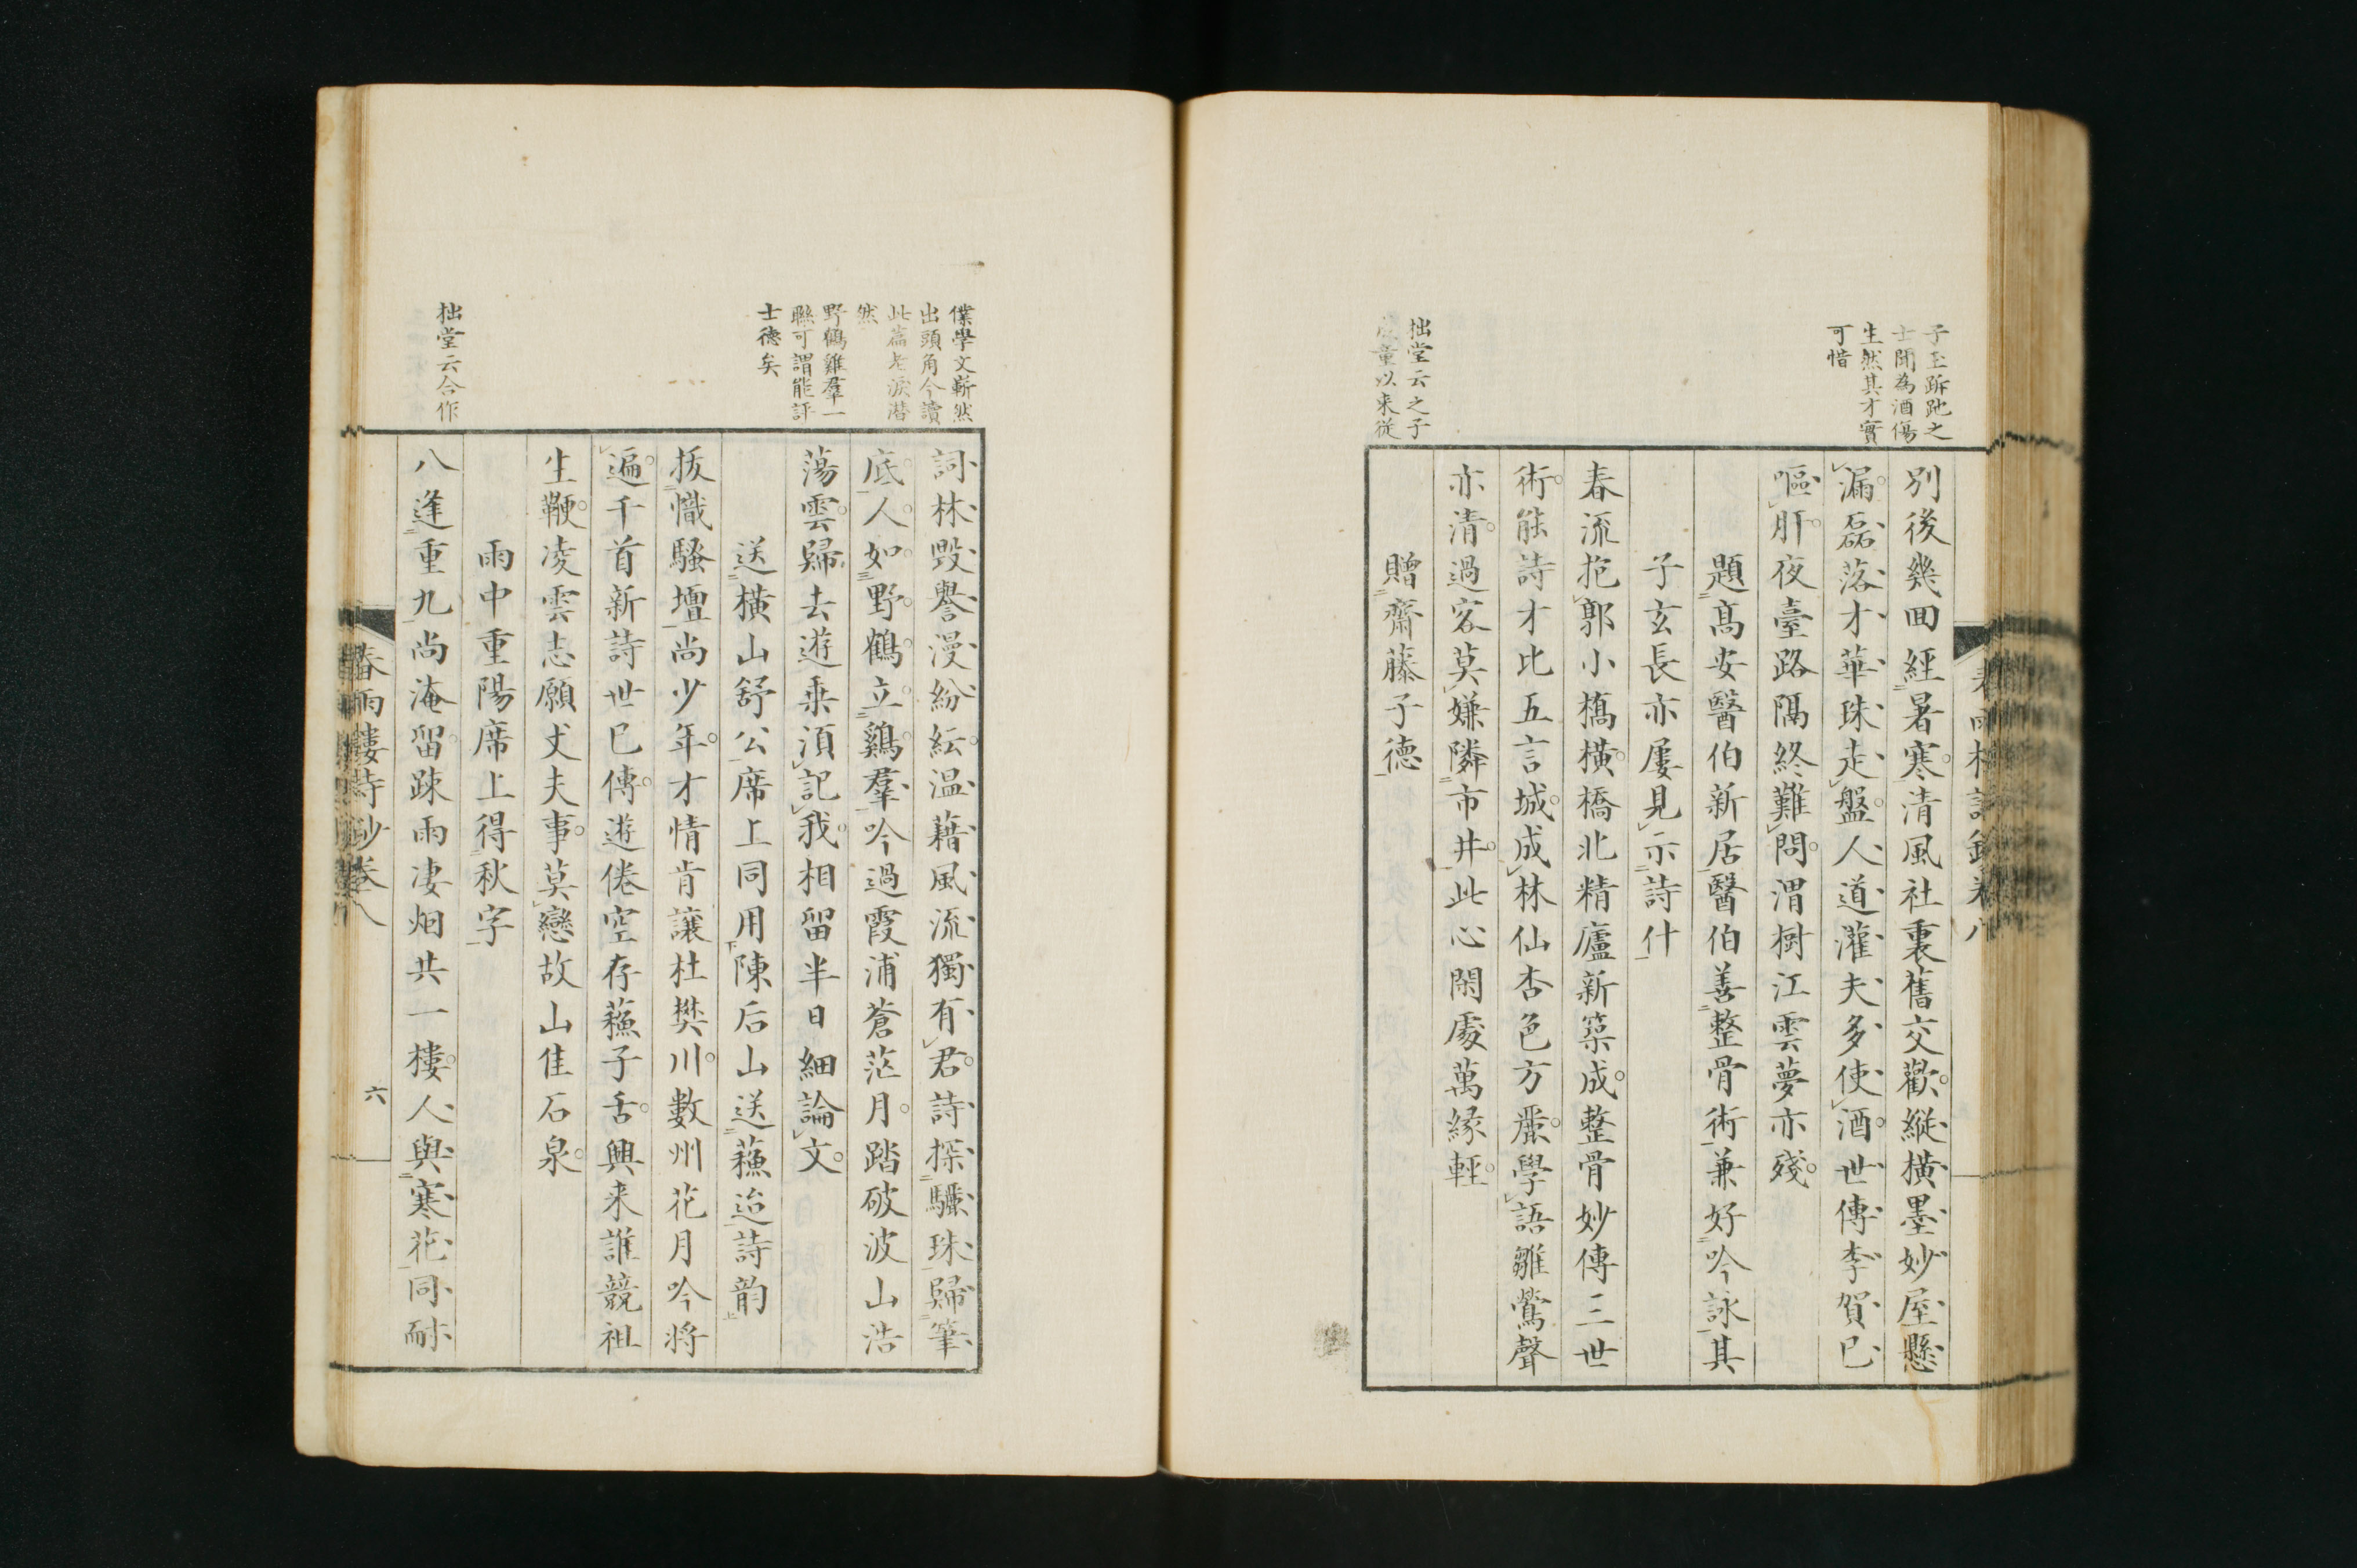 子玉跅跎之
士聞為酒傷
生然其才實
可惜
拙堂云之子
童以来從
別後幾回經暑寒清風社裏舊交歡縱横墨妙屋懸
漏磊落才華珠走盤人道灌夫多使酒世傳李賀已
嘔肝夜臺路隔終難問渭樹江雲夢亦殘
題髙安醫伯新居醫伯善整骨術兼好吟詠其
子玄長亦屢見示詩什
春流抱郭小橋横橋北精廬新築成整骨妙傳三世
術能詩才比五言城成林仙杏色方麗學語雛鶯聲
亦清過客莫嫌隣市井此心閑處萬縁輕
贈齋藤子德
僕學文嶄然
出頭角今讀
此篇老淚潜
然
野鶴雞羣一
聯可謂能評
士徳矣
拙堂云合作
詞林毀譽漫紛紜温藉風流獨有君詩探驪珠歸筆
底人如野鶴立鷄羣吟過霞浦蒼茫月踏破波山浩
蕩雲歸去遊乗湏記我相留半日細論文
送横山舒公席上同用陳后山送蘓迨詩韵
拔幟騷壇尚少年才情肯讓杜樊川數州花月吟将
遍千首新詩世已傳遊倦空存蘓子舌興来誰競祖
生鞭凌雲志願丈夫事莫戀故山佳石泉
雨中重陽席上得秋字
八逢重九尚淹留踈雨凄烟共一樓人與寒花同耐
春雨樓詩鈔巻八
六